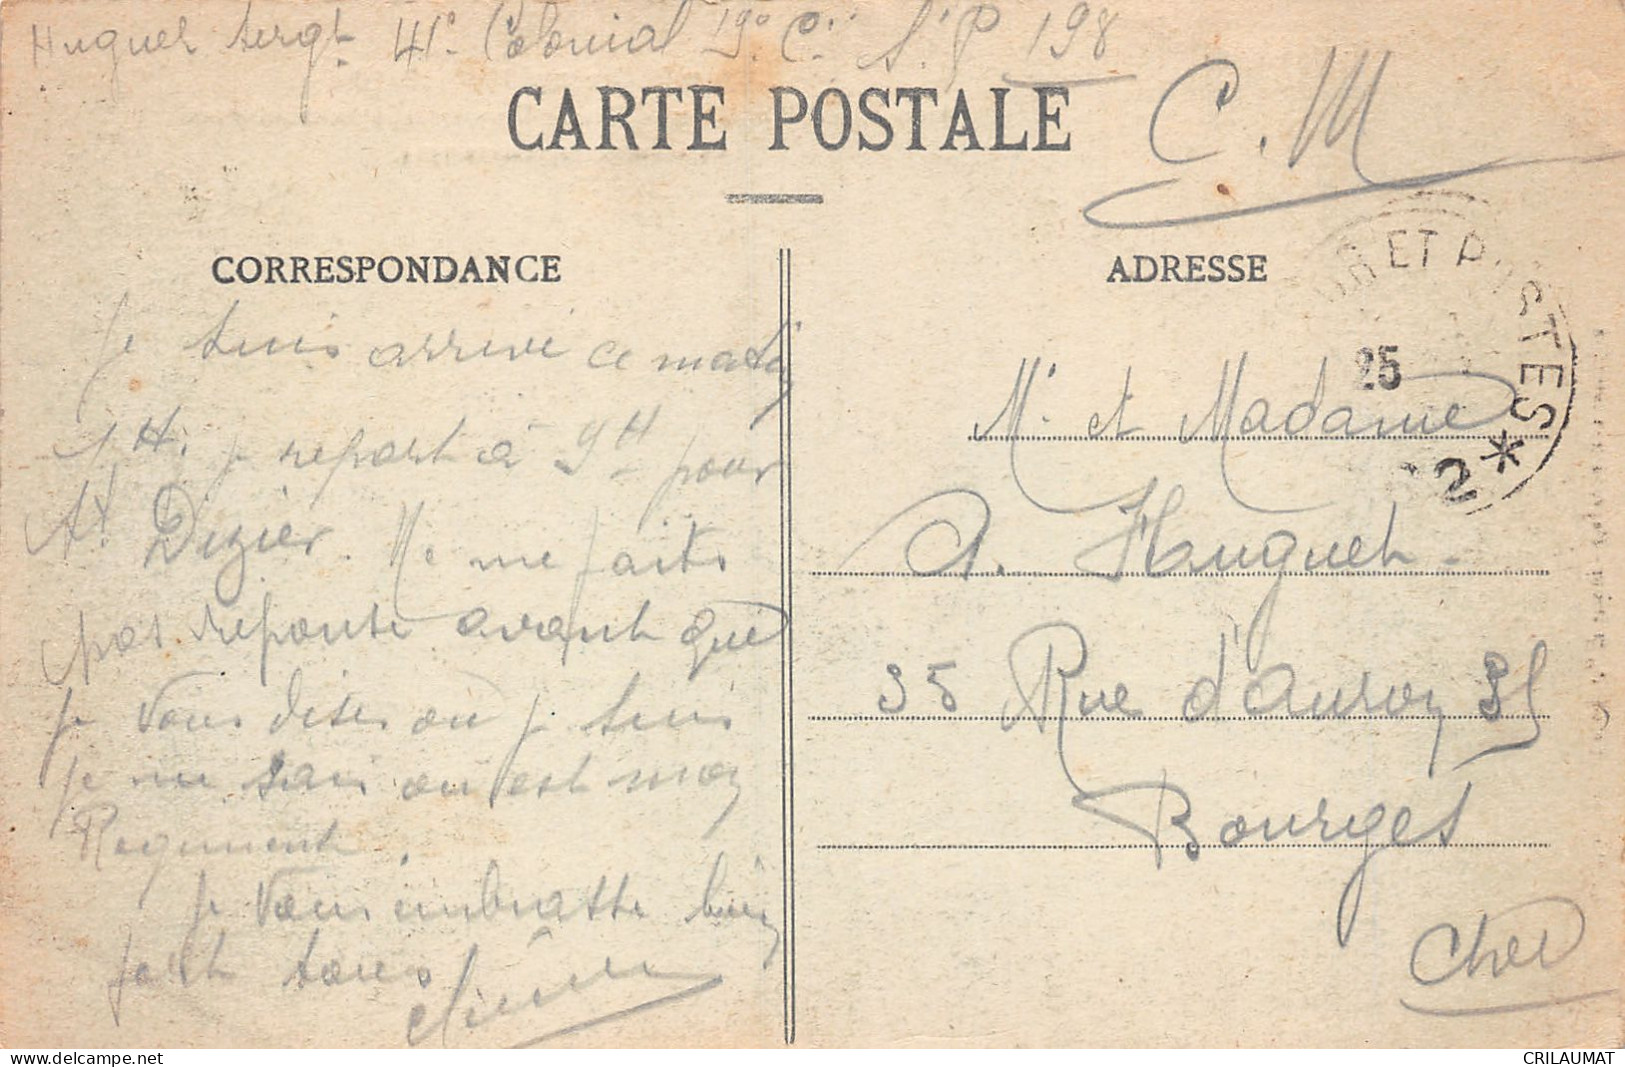 Huguet Sergt 41e Colonial 19e Cie S.P 198
CARTE POSTALE
C. M
CORRESPONDANCE
ADRESSE
Je suis arrivé ce matin
1H. je repart à 9H pour
St Dizier. Ne me faits
pas reponse avant que
je vous dises ou je suis
je ne sais ou est mon
Regiment.
je vous embrasse bien
fort tous
ET POSTES *
25
2
Mr et Madame
A. Huguet.
35 Rue d'Auron 35
Bourges
Cher
www.delcampe.net
CRILAUMAT